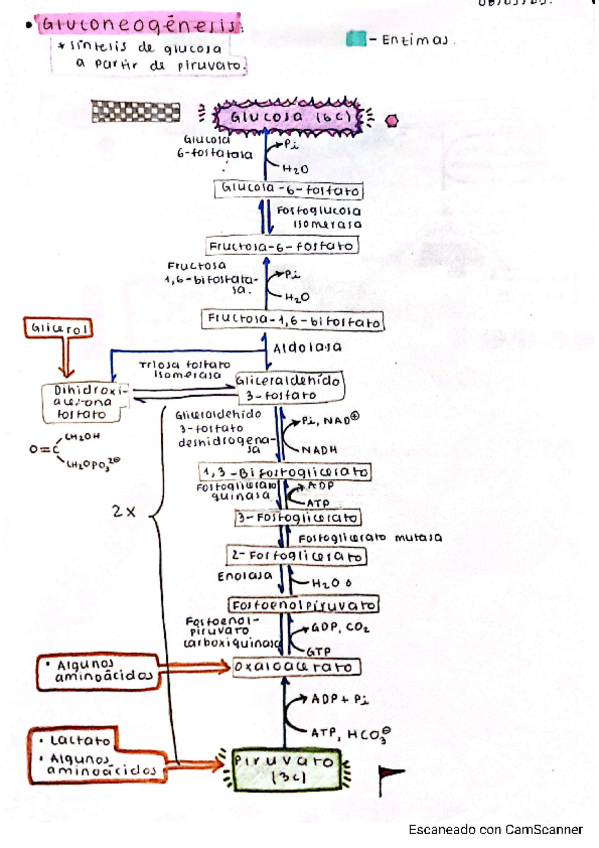 • Gluconeogénesis:
* síntesis de glucosa
a partir de piruvato.
- Enzimas.
Glucosa (6c)
Glucosa
6-fosfatasa
Pi
H₂O
Glucosa-6-fosfato
Fosfoglucosa
Isomerasa
Fructosa-6-fosfato
Fructosa
1,6-bifosfata-
sa.
Pi
H₂O
Fructosa-1,6-bifosfato
Glicerol
Aldolasa
Triosa fosfato
Isomerasa
Dihidroxi-
acetona
fosfato
Gliceraldehído
3-fosfato
O=C
CH₂OH
CH₂OPO₃²⊖
Gliceraldehído
3-fosfato
deshidrogena-
sa
Pi, NAD⊕
NADH
1,3-Bifosfoglicerato
Fosfoglicerato
quinasa
ADP
ATP
3-Fosfoglicerato
2x
Fosfoglicerato mutasa
2-Fosfoglicerato
Enolasa
H₂O
Fosfoenolpiruvato
Fosfoenol-
piruvato
carboxiquinasa
GDP, CO₂
GTP
• Algunos
aminoácidos
Oxaloacetato
ADP + Pi
ATP, HCO₃⊖
• Lactato
• Algunos
aminoácidos
Piruvato
(3c)
Escaneado con CamScanner